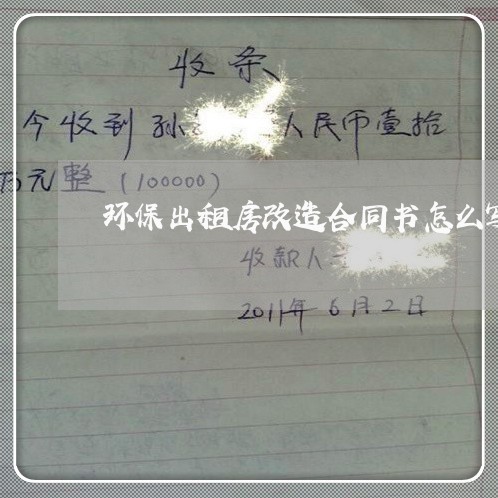 收条
今收到孙 人民币壹拾
万元整（100000）
环保出租房改造合同书怎么写
收款人
2011年6月2日